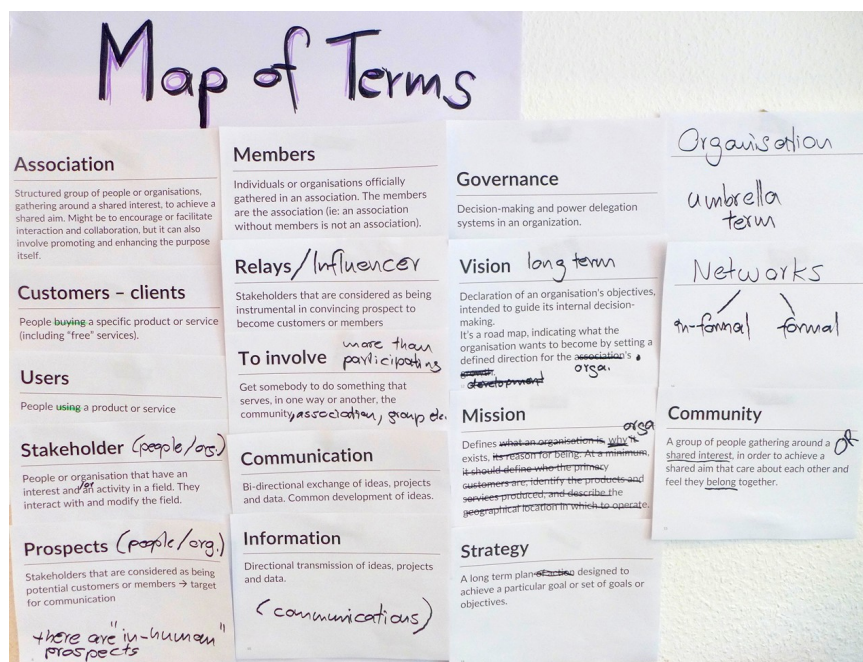 Map of Terms
Association
Structured group of people or organisations,
gathering around a shared interest, to achieve a
shared aim. Might be to encourage or facilitate
interaction and collaboration, but it can also
involve promoting and enhancing the purpose
itself.
Customers – clients
People buying a specific product or service
(including "free" services).
Users
People using a product or service
Stakeholder (people/org.)
People or organisation that have an
interest and/or an activity in a field. They
interact with and modify the field.
Prospects (people/org.)
Stakeholders that are considered as being
potential customers or members → target
for communication
there are "in-human"
prospects
Members
Individuals or organisations officially
gathered in an association. The members
are the association (ie: an association
without members is not an association).
Relays/Influencer
Stakeholders that are considered as being
instrumental in convincing prospect to
become customers or members
To involve more than
participating
Get somebody to do something that
serves, in one way or another, the
community, association, group etc.
Communication
Bi-directional exchange of ideas, projects
and data. Common development of ideas.
Information
Directional transmission of ideas, projects
and data.
(communications)
Governance
Decision-making and power delegation
systems in an organization.
Vision long term
Declaration of an organisation's objectives,
intended to guide its internal decision-
making.
It's a road map, indicating what the
organisation wants to become by setting a
defined direction for the association's
orga.
development
Mission
orga
Defines what an organisation is, why it
exists, its reason for being. At a minimum,
it should define who the primary
customers are, identify the products and
services produced, and describe the
geographical location in which to operate.
Strategy
A long term plan of action designed to
achieve a particular goal or set of goals or
objectives.
Organisation
umbrella
term
Networks
in-formal formal
Community
A group of people gathering around a
shared interest, in order to achieve a or
shared aim that care about each other and
feel they belong together.